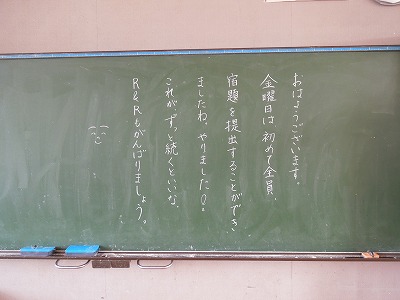 おはようございます。
金曜日は初めて全員、
宿題を提出することができ
ましたね。やりました！。
これがずっと続くといいな。
R&Rもがんばりましょう。